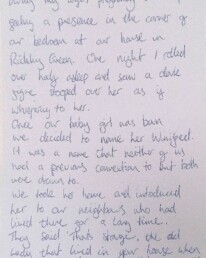 during my wife's pregnancy I kept
seeing a presence in the corner of
our bedroom at our house in
Rickling Green. One night I rolled
over half asleep and saw a dark
figure stooped over her as if
whispering to her.
Once our baby girl was born
we decided to name her Winifred.
It was a name that neither of us
had a previous connection to but both
were drawn to.
We took her home and introduced
her to our neighbours who had
lived there for a long time.
They said "That's strange, the old
lady that lived in your house when